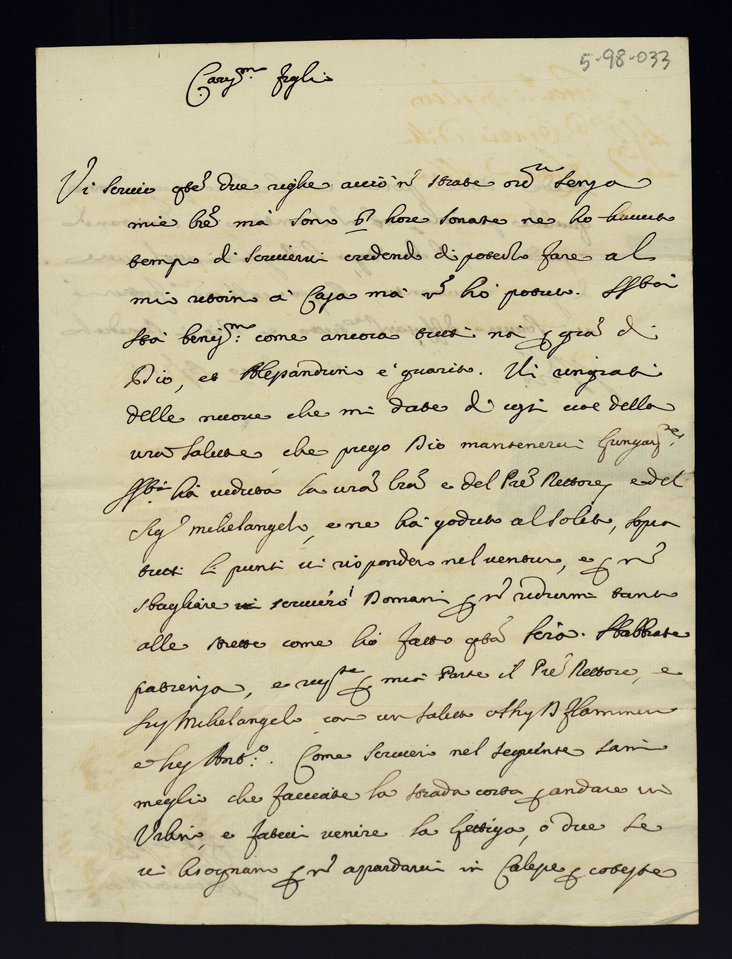 5-98-033
Cariss.mi figli
Vi scrivo q.te due righe acciò n. state ord.o senza
mie lre mà sono 6 hore sonate ne ho havuto
tempo di scrivervi credendo di poterlo fare al
mio ritorno à Casa mà n. hò potuto.
stà beniss.mo come ancora tutti noi p gra di
Dio, et Alessandrino è guarito. Vi ringratio
delle nuove che mi date di costì e della
vra salute che prego Dio mantenervi
hà veduta la vra lra e del Pre Rettore, e del
Sig.r Michelangelo, e ne hà goduto al solito, sopra
tutti li punti vi risponderò nel venturo, e p n.
sbagliare scriverò Domani p n. ridurmi tanto
alle strette come hò fatto q.ta sera. Habbiate
patienza, e riv.te p mia Parte il Pre Rettore, e
Sig Michelangelo con un saluto al Sig D Flaminio
e Sig Ant.o. Come scrivei nel seguente sarà
meglio che facciate la strada corta p andare in
Urbino, e farvi venire la lettiga, o due se
vi bisognano p n. azzardarvi in Calesse p coteste